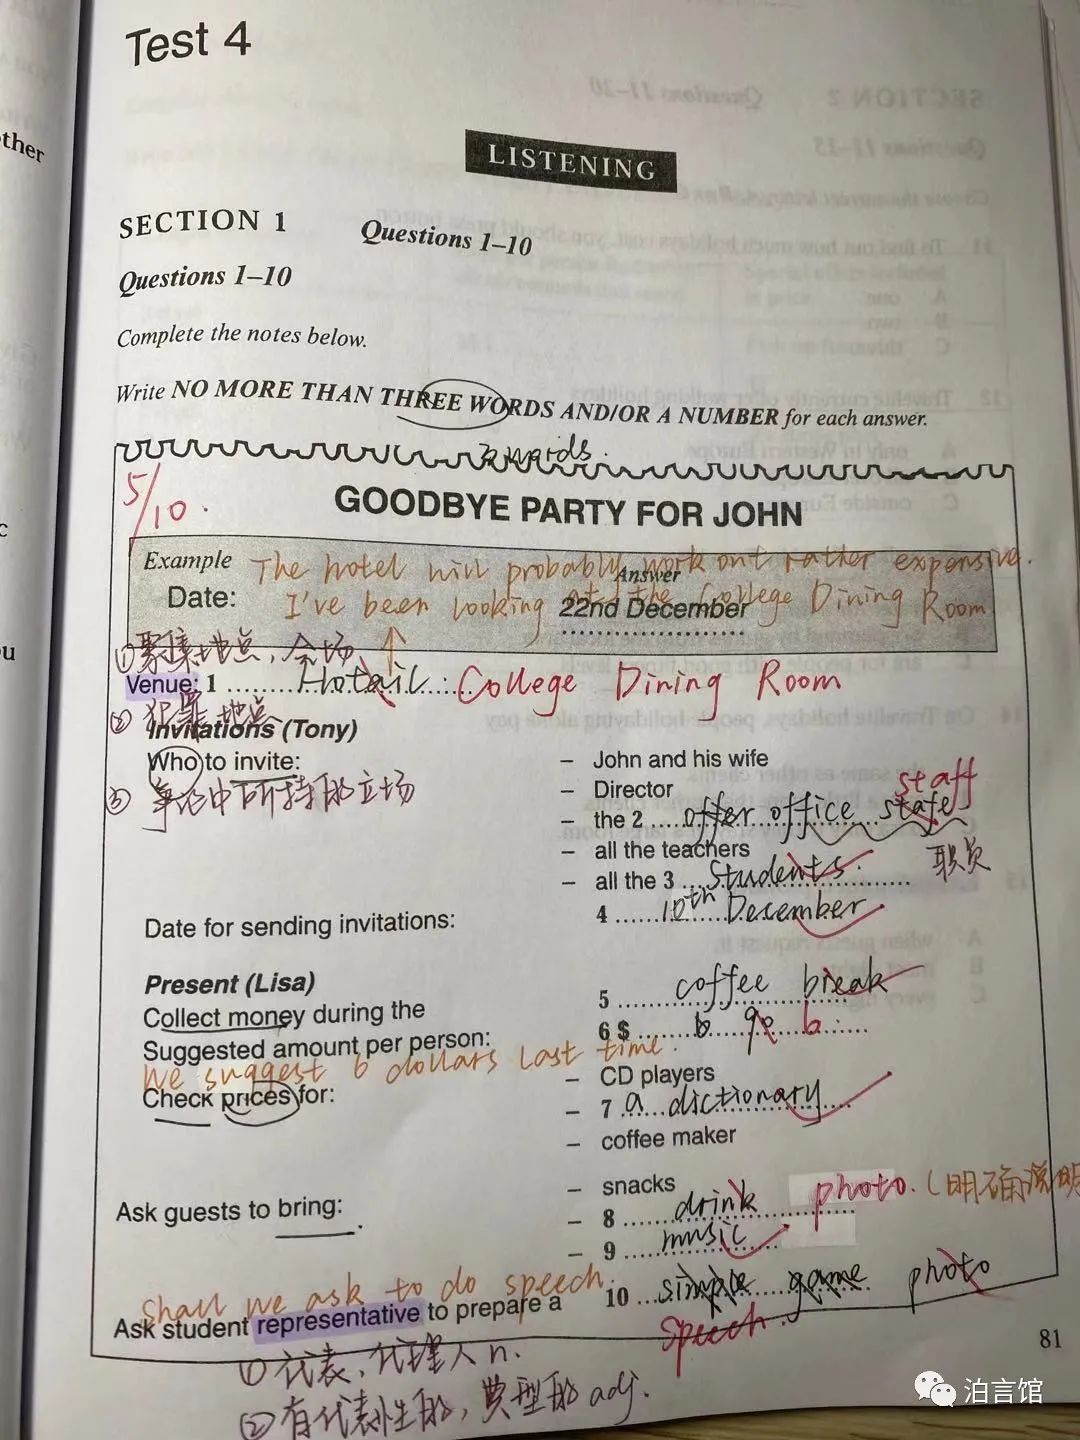 ther
Test 4
LISTENING
SECTION 1 Questions 1–10
Questions 1–10
Complete the notes below.
Write NO MORE THAN THREE WORDS AND/OR A NUMBER for each answer.
3 words.
5/10.
GOODBYE PARTY FOR JOHN
Example Answer
The hotel will probably work out rather expensive.
Date: 22nd December
I've been looking at the College Dining Room
①聚集地点,会场
Venue: 1 Hotail College Dining Room
② 犯罪地点
Invitations (Tony)
Who to invite: – John and his wife
③ 争论中所持的立场
– Director
staff
– the 2 offer office stafe
– all the teachers
职员
– all the 3 students.
Date for sending invitations: 4 10th December
Present (Lisa)
Collect money during the 5 coffee break
Suggested amount per person: 6 $ 6 90 6
We suggest 6 dollars last time.
– CD players
Check prices for: – 7 a dictionary
– coffee maker
– snacks
Ask guests to bring: – 8 drink photo. (明确说明
– 9 music
Shall we ask to do speech.
Ask student representative to prepare a 10 simple game photo
speech.
81
① 代表、代理人 n.
② 有代表性的,典型的 adj.
泊言馆